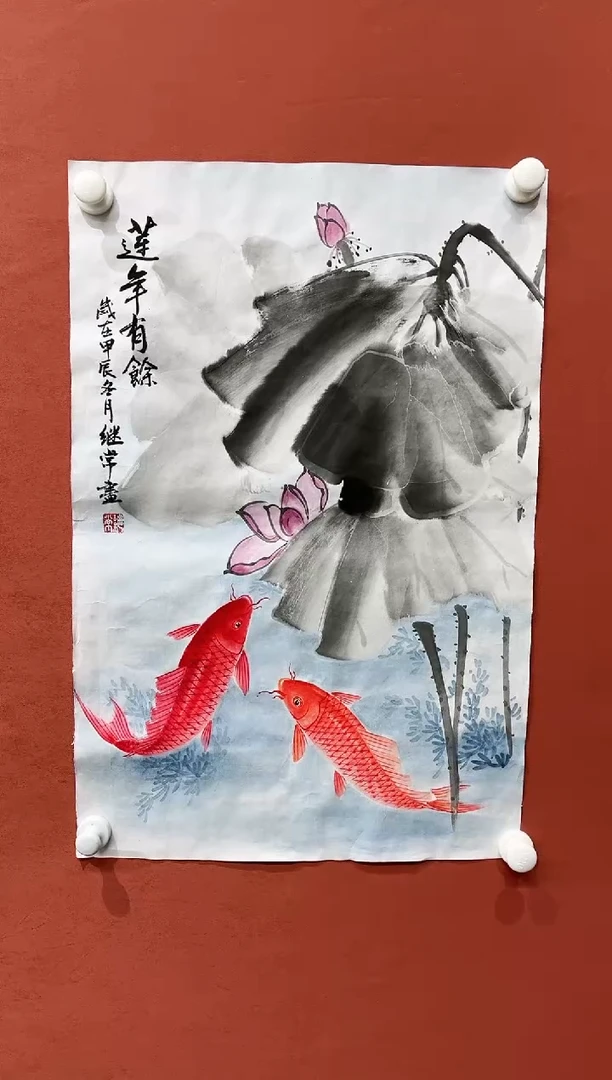 蓮年有餘
歲在甲辰冬月继常畫